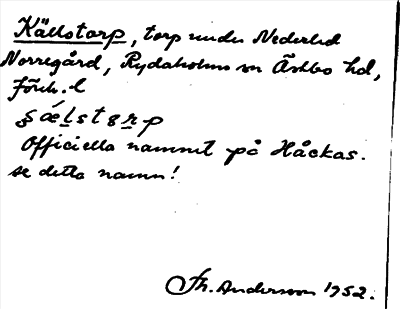 Källstorp, torp under Nederled
Norregård, Rydaholms sn Östbo hd,
Jönk. l
Officiella namnet på Håckas.
se detta namn!
Th. Andersson 1952.